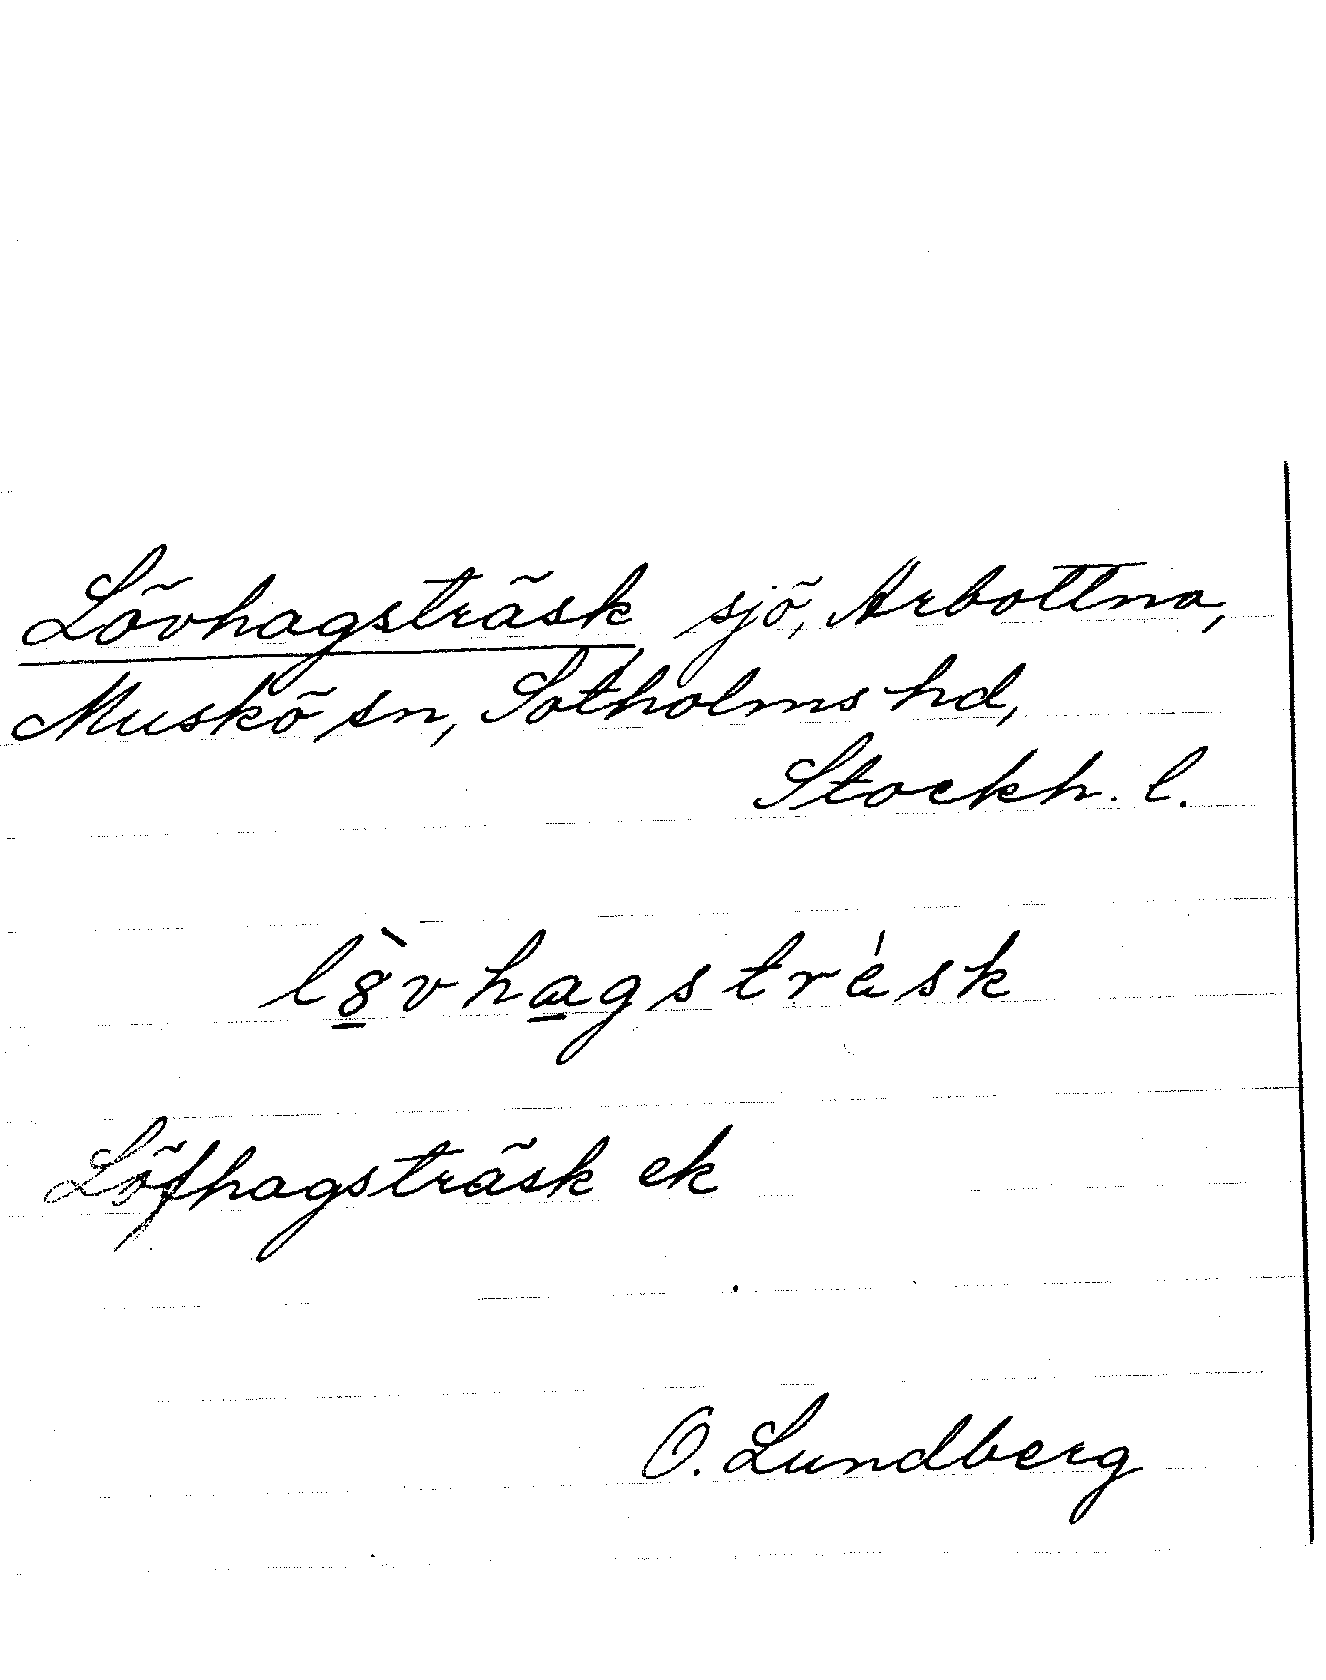 Lövhagsträsk sjö, Arbottna,
Muskö sn, Sotholms hd,
Stockh. l.
lö̀vhagstrásk
Löfhagsträsk ek
O. Lundberg